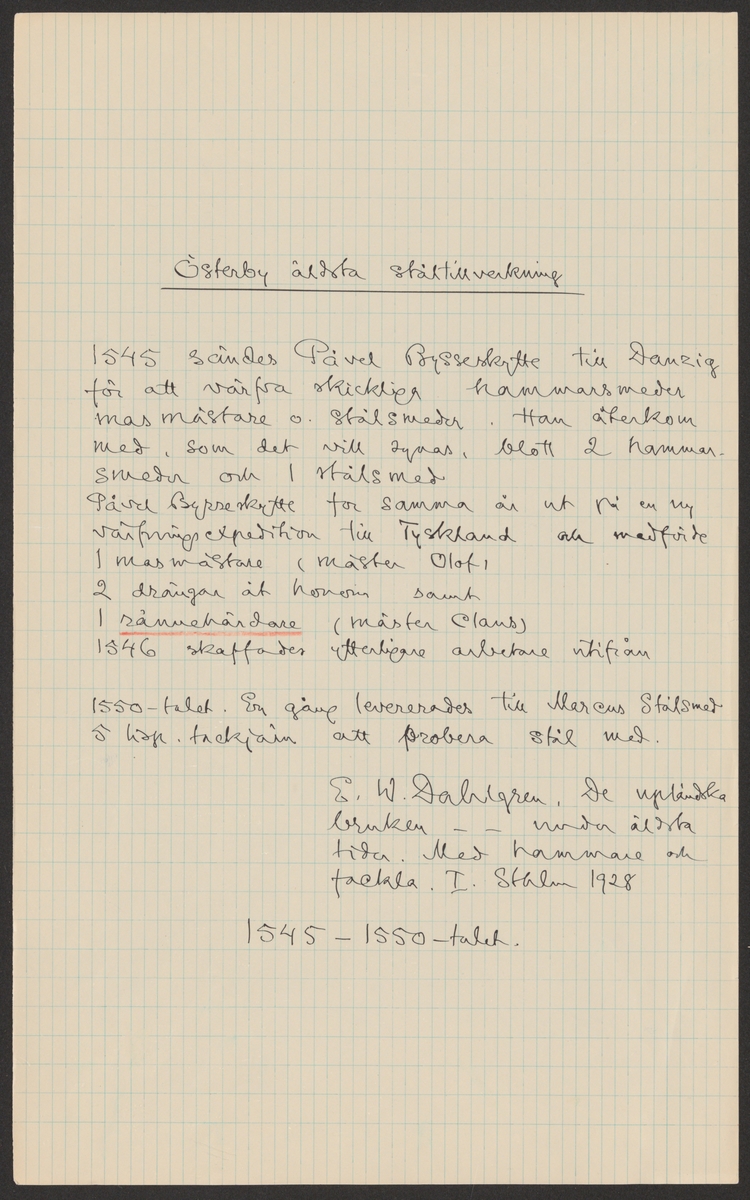 Österby äldsta ståltillverkning
1545 sändes Påvel Bysseskytte till Danzig
för att värfva skickliga hammarsmeder
masmästare o. stålsmeder. Han återkom
med, som det vill synas, blott 2 hammar-
smeder och 1 stålsmed
Påvel Bysseskytte for samma år ut på en ny
värfningsexpedition till Tyskland och medförde
1 masmästare (mäster Olof)
2 drängar åt honom samt
1 rännehärdare (mäster Claus)
1546 skaffades ytterligare arbetare utifrån
1550-talet. En gång levererades till Marcus Stålsmed
5 lisp. tackjärn att probera stål med.
E. W. Dahlgren, De uppländska
bruken - - under äldsta
tider. Med hammare och
fackla. I. Sthlm 1928
1545 - 1550-talet.